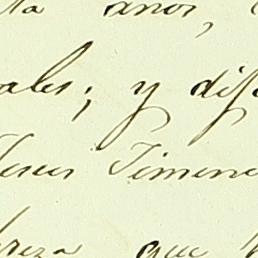 ta años,
ales; y dis
Jesus Jimene
reza que